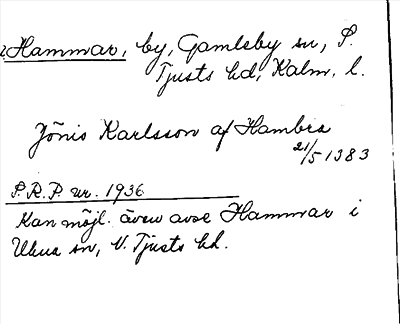 Hammar, by, Gamleby sn, S.
Tjusts hd, Kalm. l.
Jönis Karlsson af Hambra
21/5 1383
S.R.P. nr. 1936
Kan möjl. även avse Hammar i
Ukna sn, N. Tjusts hd.